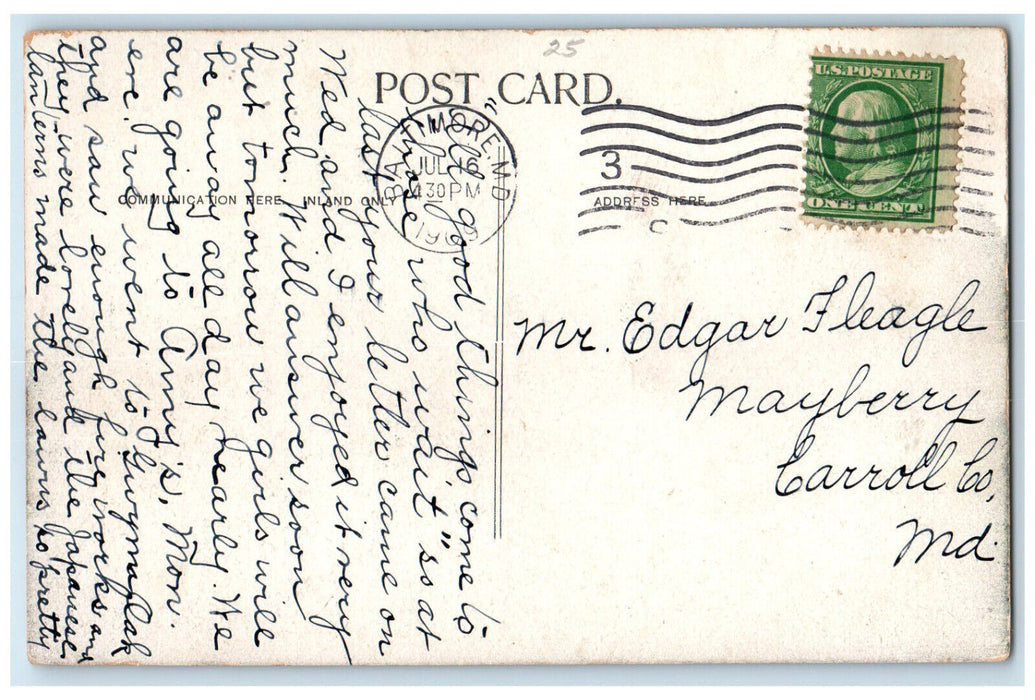 25
POST CARD.
COMMUNICATION HERE. INLAND ONLY
ADDRESS HERE.
U.S. POSTAGE
ONE CENT
BALTIMORE, MD
JUL 6
430 PM
190
3
C
Mr. Edgar Fleagle
Mayberry
Carroll Co,
Md.
"All good things come to
those who wait" so at
last your letter came on
Wed and I enjoyed it very
much. Will answer soon
but tomorrow we girls will
be away all day nearly. We
are going to Amy's. Mon.
eve. we went to Gwynnoak
and saw enough fire works and
they were lovely and the Japanese
lanterns made the lawns so pretty